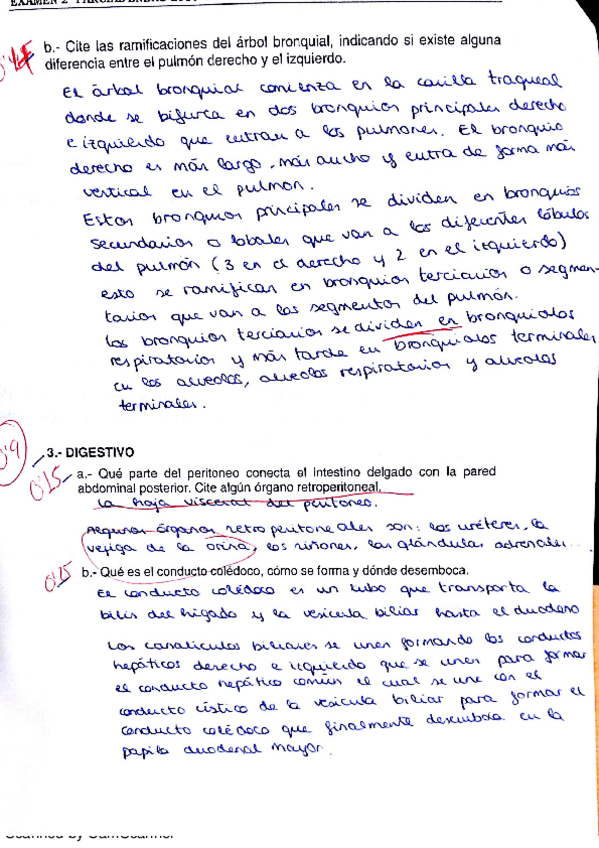 EXAMEN 2º PARCIAL ENERO
b.- Cite las ramificaciones del árbol bronquial, indicando si existe alguna
diferencia entre el pulmón derecho y el izquierdo.
El árbol bronquial comienza en la carilla traqueal
donde se bifurca en dos bronquios principales derecho
e izquierdo que entran a los pulmones. El bronquio
derecho es más largo, más ancho y entra de forma más
vertical en el pulmon.
Estos bronquios principales se dividen en bronquios
secundarios o lobales que van a los diferentes lóbulos
del pulmón (3 en el derecho y 2 en el izquierdo)
esto se ramifican en bronquios terciarios o segmen-
tarios que van a los segmentos del pulmón.
los bronquios terciarios se dividen en bronquiolos
respiratorios y más tarde en bronquiolos terminales
en los alveolos, alveolos respiratorios y alveolos
terminales.
0'9
3.- DIGESTIVO
0'15
a.- Qué parte del peritoneo conecta el intestino delgado con la pared
abdominal posterior. Cite algún órgano retroperitoneal.
La hoja visceral del peritoneo.
Algunos órganos retroperitoneales son: los uréteres, la
vejiga de la orina, los riñones, las glándulas adrenales...
0'25
b.- Qué es el conducto colédoco, cómo se forma y dónde desemboca.
El conducto colédoco es un tubo que transporta la
bilis del hígado y la vesicula biliar hasta el duodeno
Los canaliculos biliares se unen formando los conductos
hepáticos derecho e izquierdo que se unen para formar
el conducto hepático común el cual se une con el
conducto cístico de la vesicula biliar para formar el
conducto colédoco que finalmente desemboca en la
papila duodenal mayor.
Scanned by CamScanner